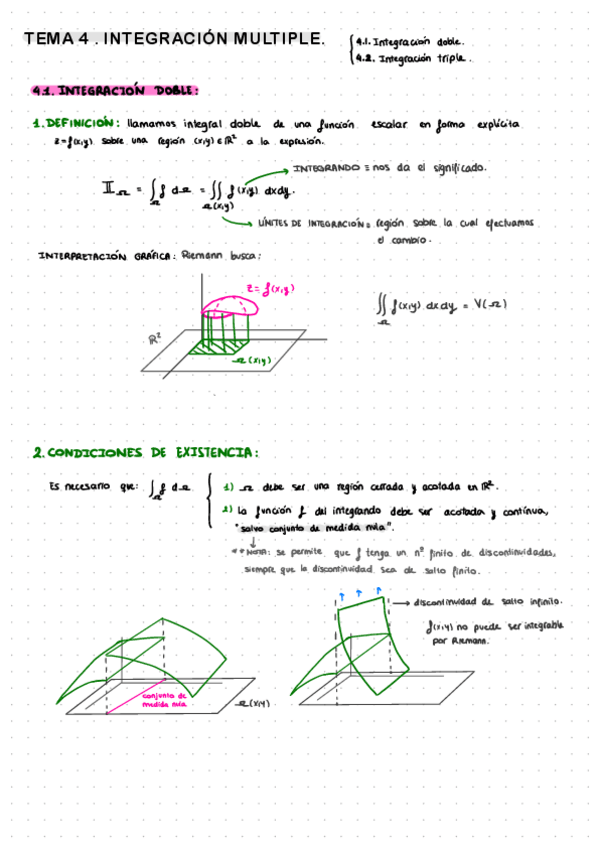 TEMA 4 . INTEGRACIÓN MULTIPLE.
4.1. Integración doble.
4.2. Integración triple.
4.1. INTEGRACIÓN DOBLE:
1. DEFINICIÓN: llamamos integral doble de una función escalar en forma explícita
z=f(x,y) sobre una región (x,y) ∈ ℝ² a la expresión.
INTEGRANDO ≡ nos da el significado.
II_Ω = ∫_Ω f dΩ = ∬_Ω(x,y) f(x,y) dxdy.
LÍMITES DE INTEGRACIÓN ≡ región sobre la cual efectuamos
el cambio.
INTERPRETACIÓN GRÁFICA: Riemann busca:
z= f(x,y)
∬_Ω f(x,y) dxdy = V(Ω)
ℝ²
Ω(x,y)
2. CONDICIONES DE EXISTENCIA:
Es necesario que: ∫_Ω f dΩ
1) Ω debe ser una región cerrada y acotada en ℝ².
2) La función f del integrando debe ser acotada y continua,
"salvo conjunto de medida nula".
**NOTA: se permite que f tenga un nº finito de discontinuidades,
siempre que la discontinuidad sea de salto finito.
discontinuidad de salto infinito.
f(x,y) no puede ser integrable
por Riemann.
conjunto de
medida nula
Ω(x,y)